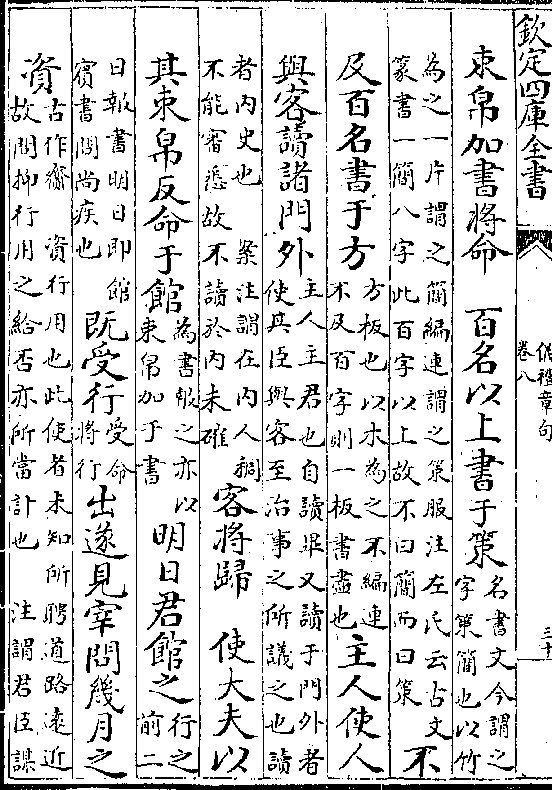 欽定四庫全書
儀禮章句
卷八
三十
束帛加書將命　百名以上書于策
名書文今謂之
字策簡也以竹
為之一片謂之簡編連謂之策服注左氏云古文
篆書一簡八字此百字以上故不曰簡而曰策
不
及百名書于方
方板也以木為之不編連
不及百字則一板書盡也
主人使人
與客讀諸門外
主人主君也自讀畢又讀于門外者
使其臣與客至治事之所議之也讀
者内史也　案注謂在内人稠
不能審悉故不讀於内未確
客將歸　使大夫以
其束帛反命于館
為書報之亦以
束帛加于書
明日君館之
行之
前二
日報書明日即館
賓書問尚疾也
既受行
受命
將行
出遂見宰問幾月之
資
古作齎　資行用也此使者未知所聘道路遠近
故問抑行用之給否亦所當計也　注謂君臣謀